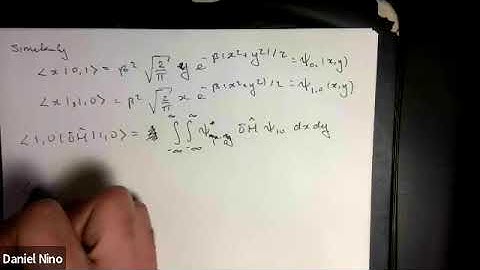 Similarly
⟨x|0,1⟩ = β² √(2/π) y e^{-β(x²+y²)/2} = ψ₀,₁(x,y)
⟨x|1,0⟩ = β² √(2/π) x e^{-β(x²+y²)/2} = ψ₁,₀(x,y)
⟨1,0|δĤ|1,0⟩ = ∫_{-∞}^{∞} ∫_{-∞}^{∞} ψ* δĤ ψ₁,₀ dx dy
Daniel Nino